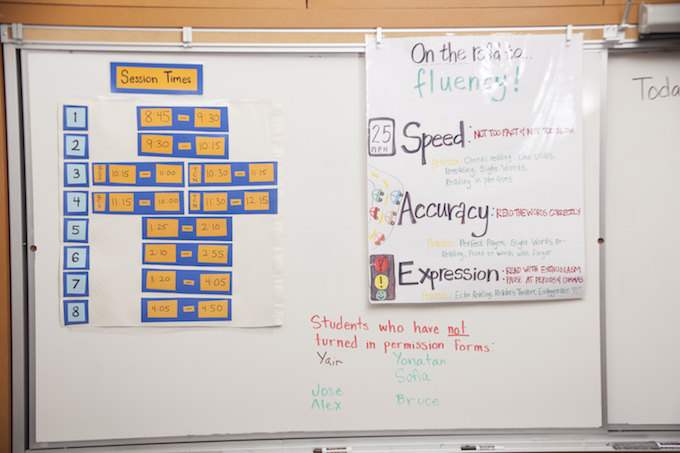 Session Times
1 8:45 - 9:30
2 9:30 - 10:15
3 10:15 - 11:00 10:30 - 11:15
4 11:15 - 12:00 11:30 - 12:15
5 1:25 - 2:10
6 2:10 - 2:55
7 3:20 - 4:05
8 4:05 - 4:50
On the road to...
fluency!
25
MPH
Speed: NOT TOO FAST & NOT TOO SLOW
Practice: Choral reading,
Rereading, Sight Words,
Reading in phrases
Accuracy: READ THE WORDS CORRECTLY
Practice: Perfect Pages, Sight Words, Re-
Reading, Point to words with finger
Expression: READ WITH ENTHUSIASM
PAUSE AT PERIODS & COMMAS
Practice: Echo Reading, Reader's Theatre,
Students who have not
turned in permission forms:
Yair Yonatan
Sofia
Jose
Alex Bruce
Toda